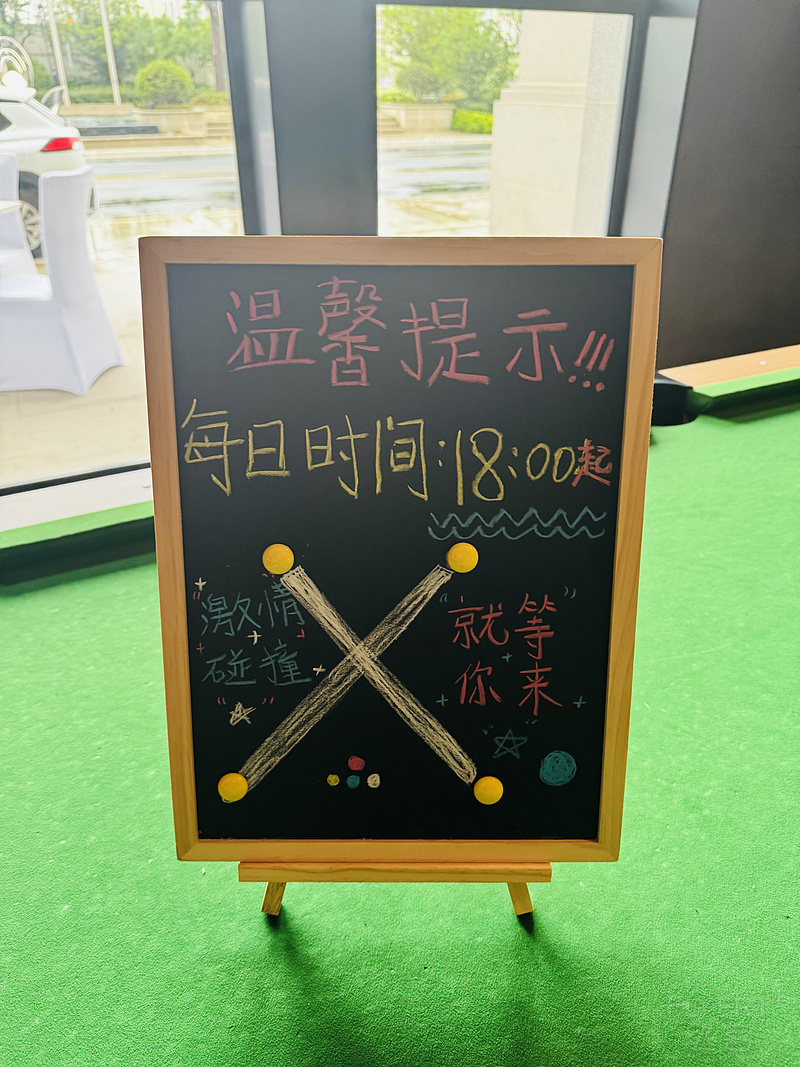 温馨提示!!!
每日时间:18:00起
"激情
碰撞"
"就等"
你来"